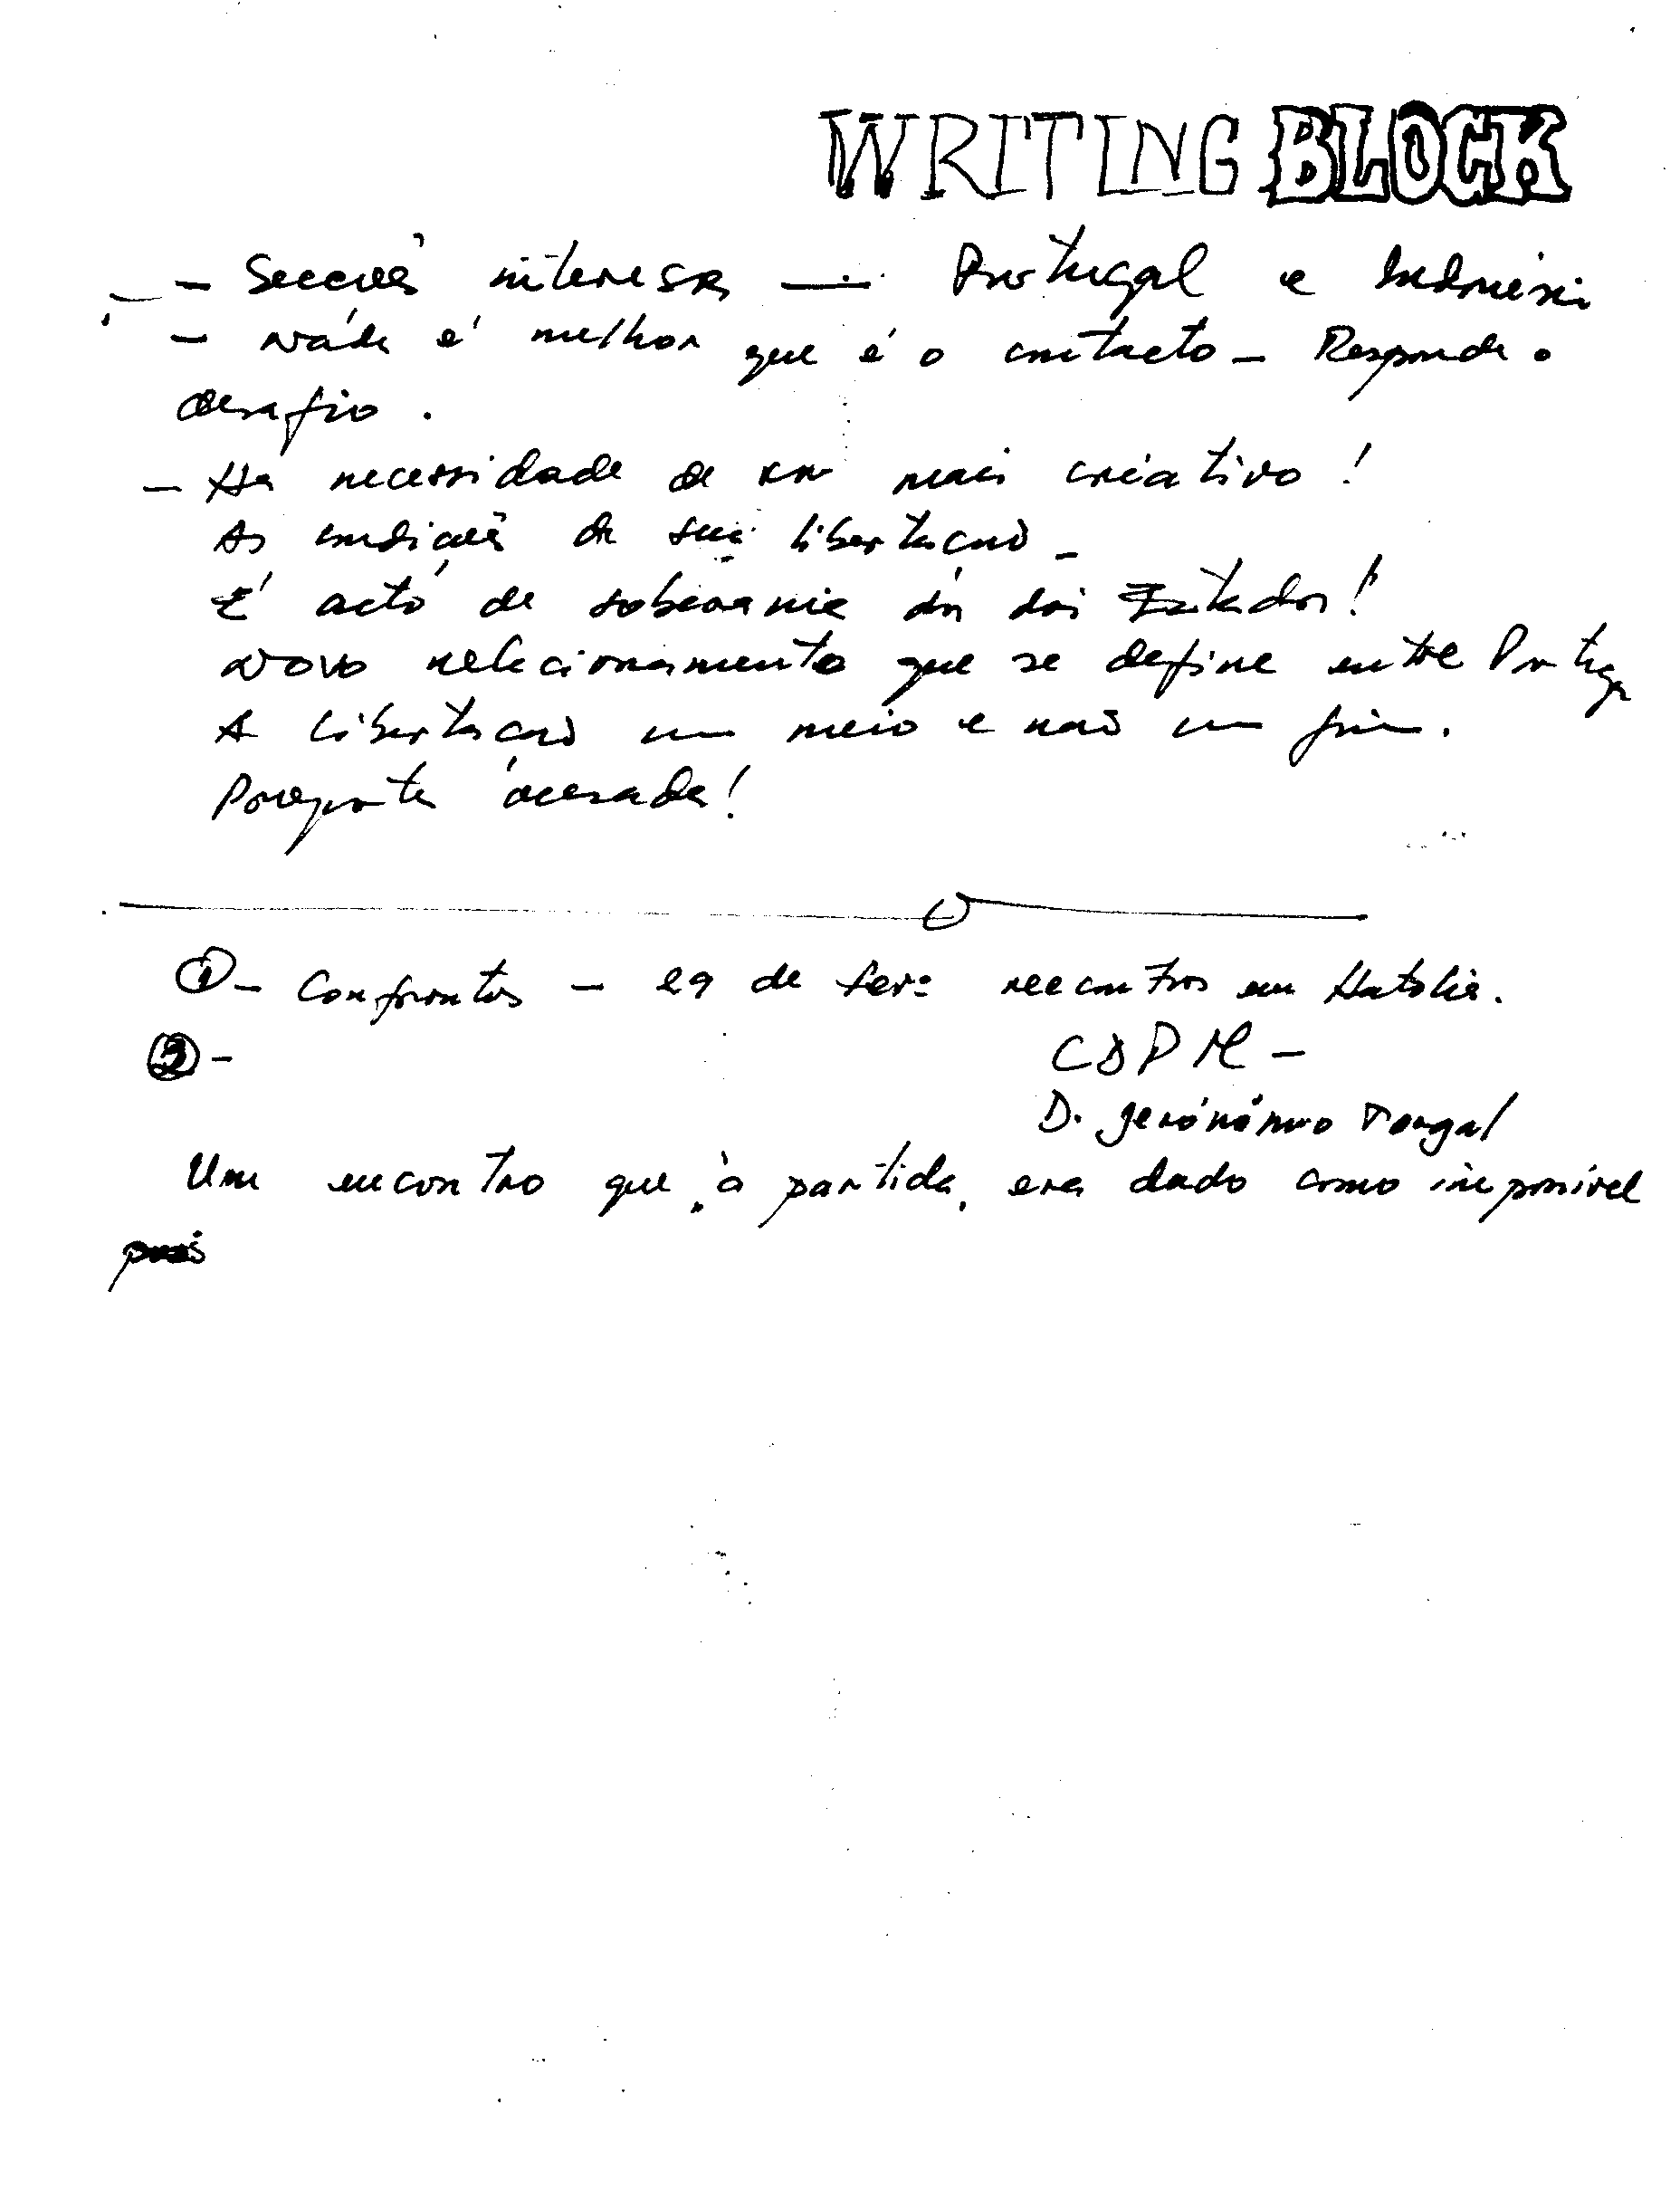 WRITING BLOCK
- Secções interesses — Portugal e Indonésia
- Nada é melhor que é o contacto - Responde o
desafio.
- Há necessidade de ser mais creativo!
As condições da sua libertação -
É acto de soberania dos dois Estados!
Novo relacionamento que se define entre
A libertação um meio e não um fim.
acesada!
① - Confrontos - 29 de Fev: reecontros em Hatolia.
② -
CDPM -
D. Jerónimo Torgal
Um encontro que, à partida, era dado como impossível
pois